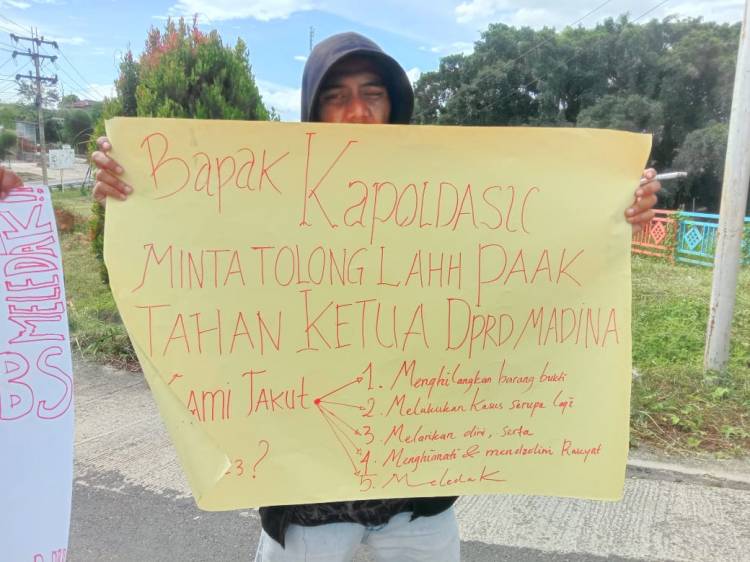 Bapak KAPOLDASU
MINTA TOLONG LAHH PAAK
TAHAN KETUA DPRD MADINA
KAMI TAKUT
1. Menghilangkan barang bukti
2. Melukukan Kasus serupa lagi
3. Melarikan diri, serta
4. Menghianati & mendzolimi Rakyat
5. Meledak
3?
MELEDAK!!